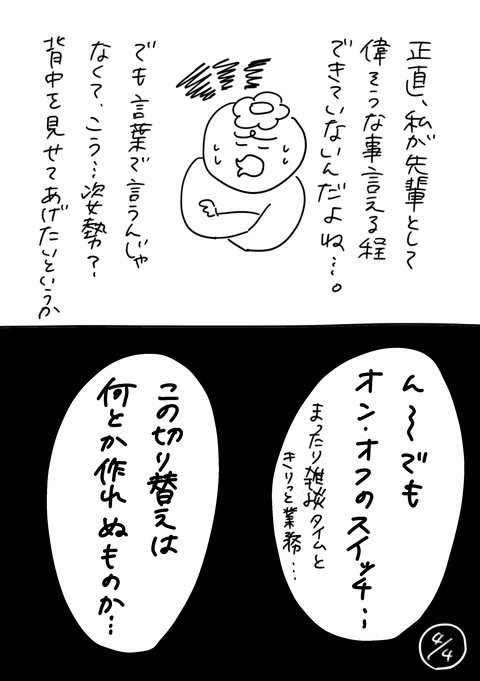 正直、私が先輩として
偉そうな事言える程
できていないんだよね…。
でも言葉で言うんじゃ
なくて、こう…姿勢？
背中を見せてあげたいというか
ん〜でも
オン・オフのスイッチ…
まったり雑談タイムと
きりっと業務…
この切り替えは
何とか作れぬものか…
4/4